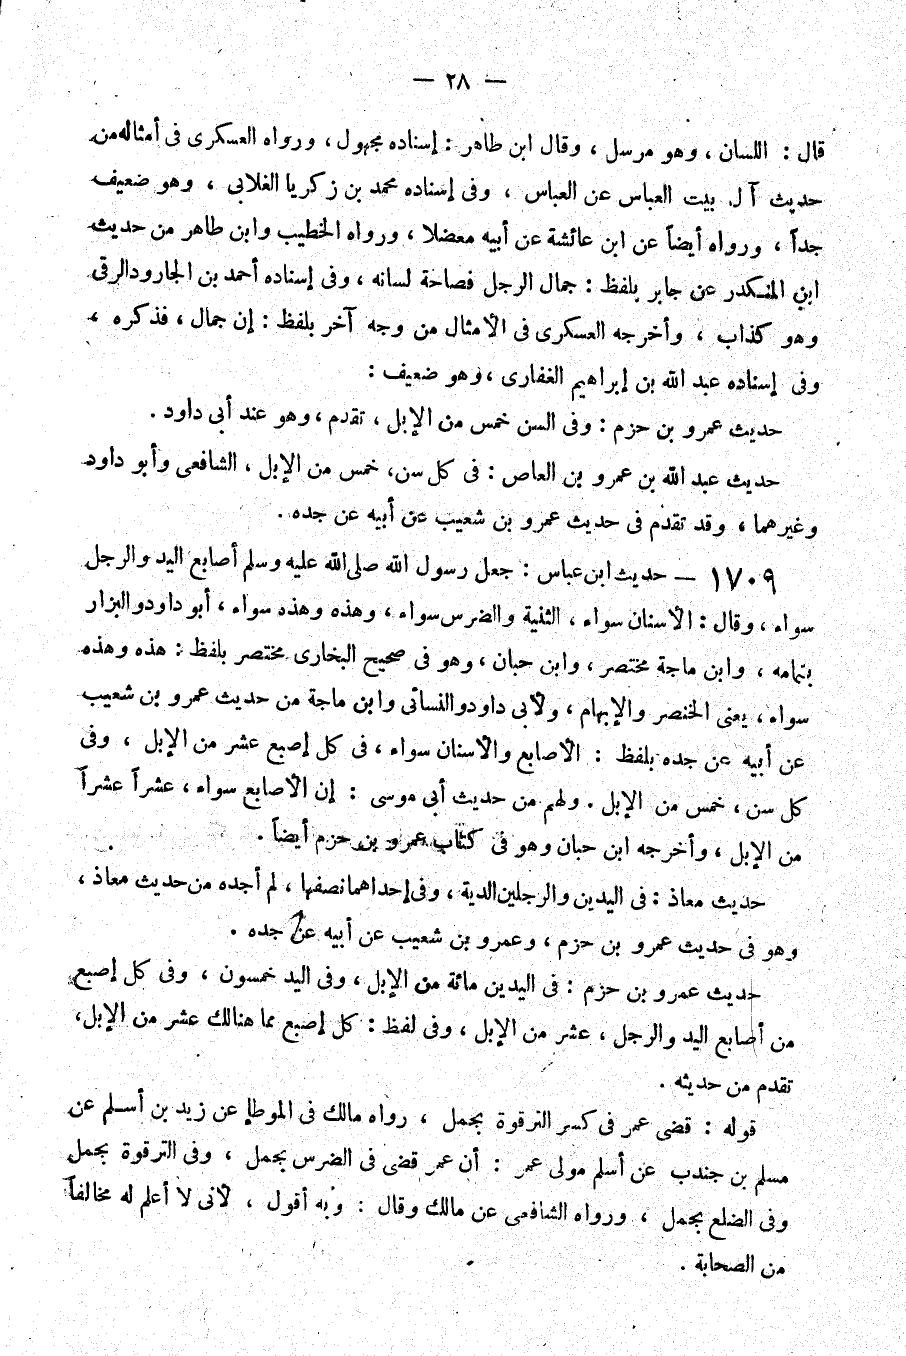 — ٢٨ —
قال : اللسان ، وهو مرسل ، وقال ابن طاهر : إسناده مجهول ، ورواه العسكرى فى أمثاله من
حديث آل بيت العباس عن العباس ، وفى إسناده محمد بن زكريا الغلابى ، وهو ضعيف
جداً ، ورواه أيضاً عن ابن عائشة عن أبيه معضلا ، ورواه الخطيب وابن طاهر من حديث
ابن المنكدر عن جابر بلفظ : جمال الرجل فصاحة لسانه ، وفى إسناده أحمد بن الجارود الرقى
وهو كذاب ، وأخرجه العسكرى فى الأمثال من وجه آخر بلفظ : إن جمال ، فذكره ،
وفى إسناده عبد الله بن إبراهيم الغفارى ، وهو ضعيف :
حديث عمرو بن حزم : وفى السن خمس من الإبل ، تقدم ، وهو عند أبى داود .
حديث عبد الله بن عمرو بن العاص : فى كل سن، خمس من الإبل ، الشافعى وأبو داود
وغيرهما ، وقد تقدم فى حديث عمرو بن شعيب عن أبيه عن جده .
١٧٠٩ — حديث ابن عباس : جعل رسول الله صلى الله عليه وسلم أصابع اليد والرجل
سواء ، وقال : الأسنان سواء ، الثنية والضرس سواء ، وهذه وهذه سواء ، أبو داود والبزار
بتمامه ، وابن ماجة مختصر ، وابن حبان ، وهو فى صحيح البخارى مختصر بلفظ : هذه وهذه
سواء ، يعنى الخنصر والإبهام ، ولأبى داود والنسائى وابن ماجة من حديث عمرو بن شعيب
عن أبيه عن جده بلفظ : الأصابع والأسنان سواء ، فى كل إصبع عشر من الإبل ، وفى
كل سن ، خمس من الإبل . ولهم من حديث أبى موسى : إن الأصابع سواء ، عشراً عشراً
من الإبل ، وأخرجه ابن حبان وهو فى كتاب عمرو بن حزم أيضاً .
حديث معاذ : فى اليدين والرجلين الدية ، وفى إحداهما نصفها ، لم أجده من حديث معاذ ،
وهو فى حديث عمرو بن حزم ، وعمرو بن شعيب عن أبيه عن جده .
حديث عمرو بن حزم : فى اليدين مائة من الإبل ، وفى اليد خمسون ، وفى كل إصبع
من أصابع اليد والرجل ، عشر من الإبل ، وفى لفظ : كل إصبع مما هنالك عشر من الإبل،
تقدم من حديثه .
قوله : قضى عمر فى كسر الترقوة بجمل ، رواه مالك فى الموطإ عن زيد بن أسلم عن
مسلم بن جندب عن أسلم مولى عمر : أن عمر قضى فى الضرس بجمل ، وفى الترقوة بجمل
وفى الضلع بجمل ، ورواه الشافعى عن مالك وقال : وبه أقول ، لأنى لا أعلم له مخالفاً
من الصحابة .